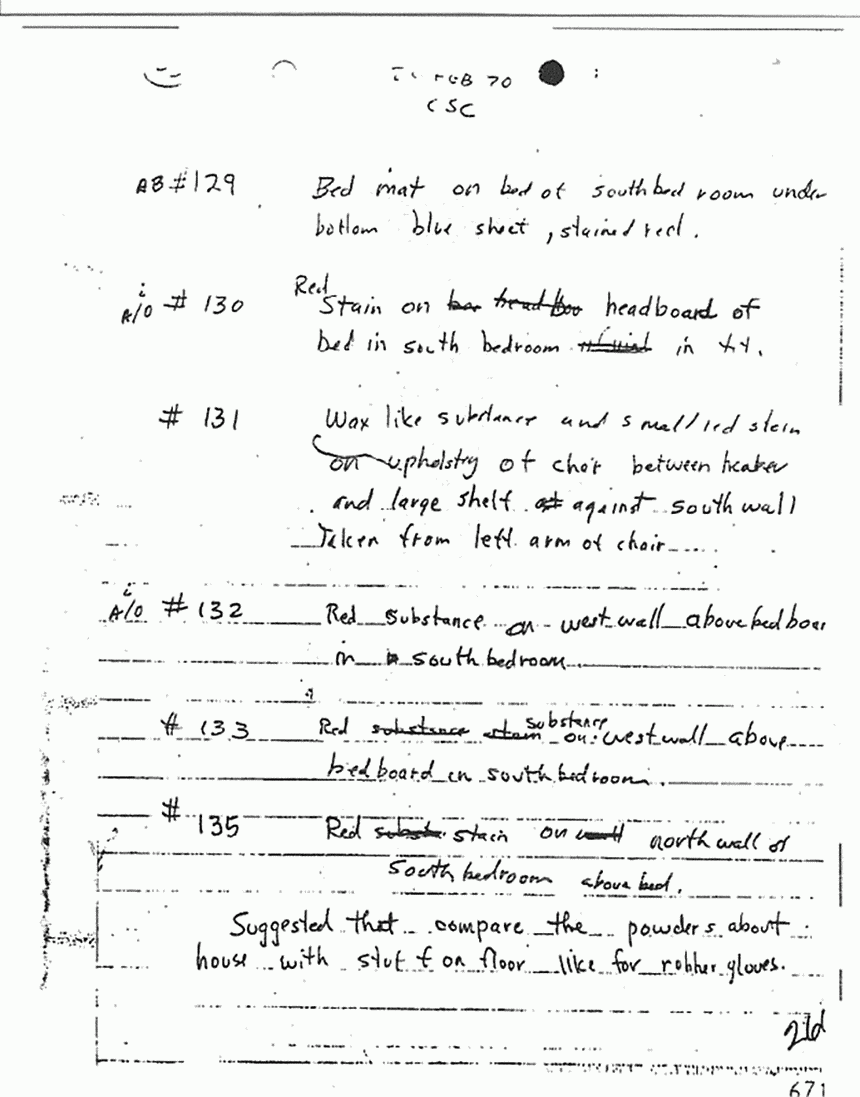 FEB 70
CSC
AB #129 Bed mat on bed of south bed room under
bottom blue sheet, stained red.
i
A/O # 130 Red Stain on headboard of
bed in south bedroom in
# 131 Wax like substance and small red stain
on upholstry of chair between heater
and large shelf against south wall
Taken from left arm of chair
i
A/O # 132 Red substance on west wall above bed boar
in south bedroom
# 133 Red substance on west wall above
bedboard in south bedroom.
# 135 Red stain on north wall of
South bedroom above bed.
Suggested that compare the powders about
house with stuff on floor like for rubber gloves.
21d
671